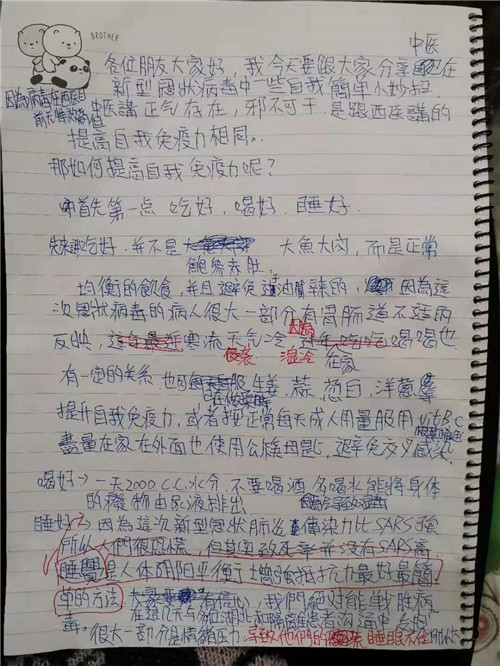 BROTHER
中医
各位朋友大家好，我今天要跟大家分享在
新型冠狀病毒中一些自我簡单小妙招
因為病毒在西医目
前无特效药
中医講正气存在，邪不可干 是跟西医講的
提高自我免疫力相同。
那如何提高自我免疫力呢？
首先第一点 吃好，喝好，睡好
先來講吃好，并不是 大魚大肉，而是正常
鮑參赤肚，
均衡的飲食，并且避免油膩辣的，因為這
次冠狀病毒的病人很大一部分有胃肠道不适的
反映，這年最近寒流天气冷 過年吃吃喝喝也
在家
有一定的关系 也可服生姜 蒜 葱白 洋葱
提升自我免疫力，或者把正常每天成人用量服用vit B.C
盡量在家在外面也使用公筷母匙，避免交叉感染
喝好→一天2000 C.C.水分，不要喝酒 多喝水能将身体
的穢物由尿液排出
睡好→因為這次新型冠狀肺炎傳染力比SARS强
所以人們很恐慌，但其实致死率并没有SARS高，
睡覺是人体阴阳平衡，增强抵抗力最好最簡
单的方法，大家有信心，我們絕对能戰胜病
毒。在這几天与
很大一部分是情绪压力，导致他們的睡眠不佳